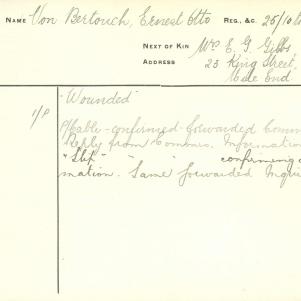 NAME Von Bertouch, Ernest Otto REG., &C. 25/10
NEXT OF KIN Mrs E. G. Gibbs
ADDRESS 23 King Street,
Mile End.
"Wounded"
Cable - confirmed - forwarded
Reply from Commrs. Information
" " confirming
mation. Same forwarded